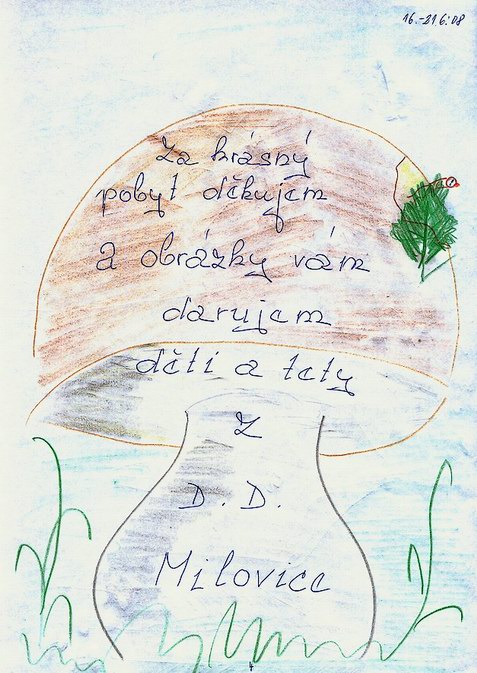 16.-21.6.'08
Za krásný
pobyt děkujem
a obrázky vám
darujem
děti a tety
z
D. D.
Milovice